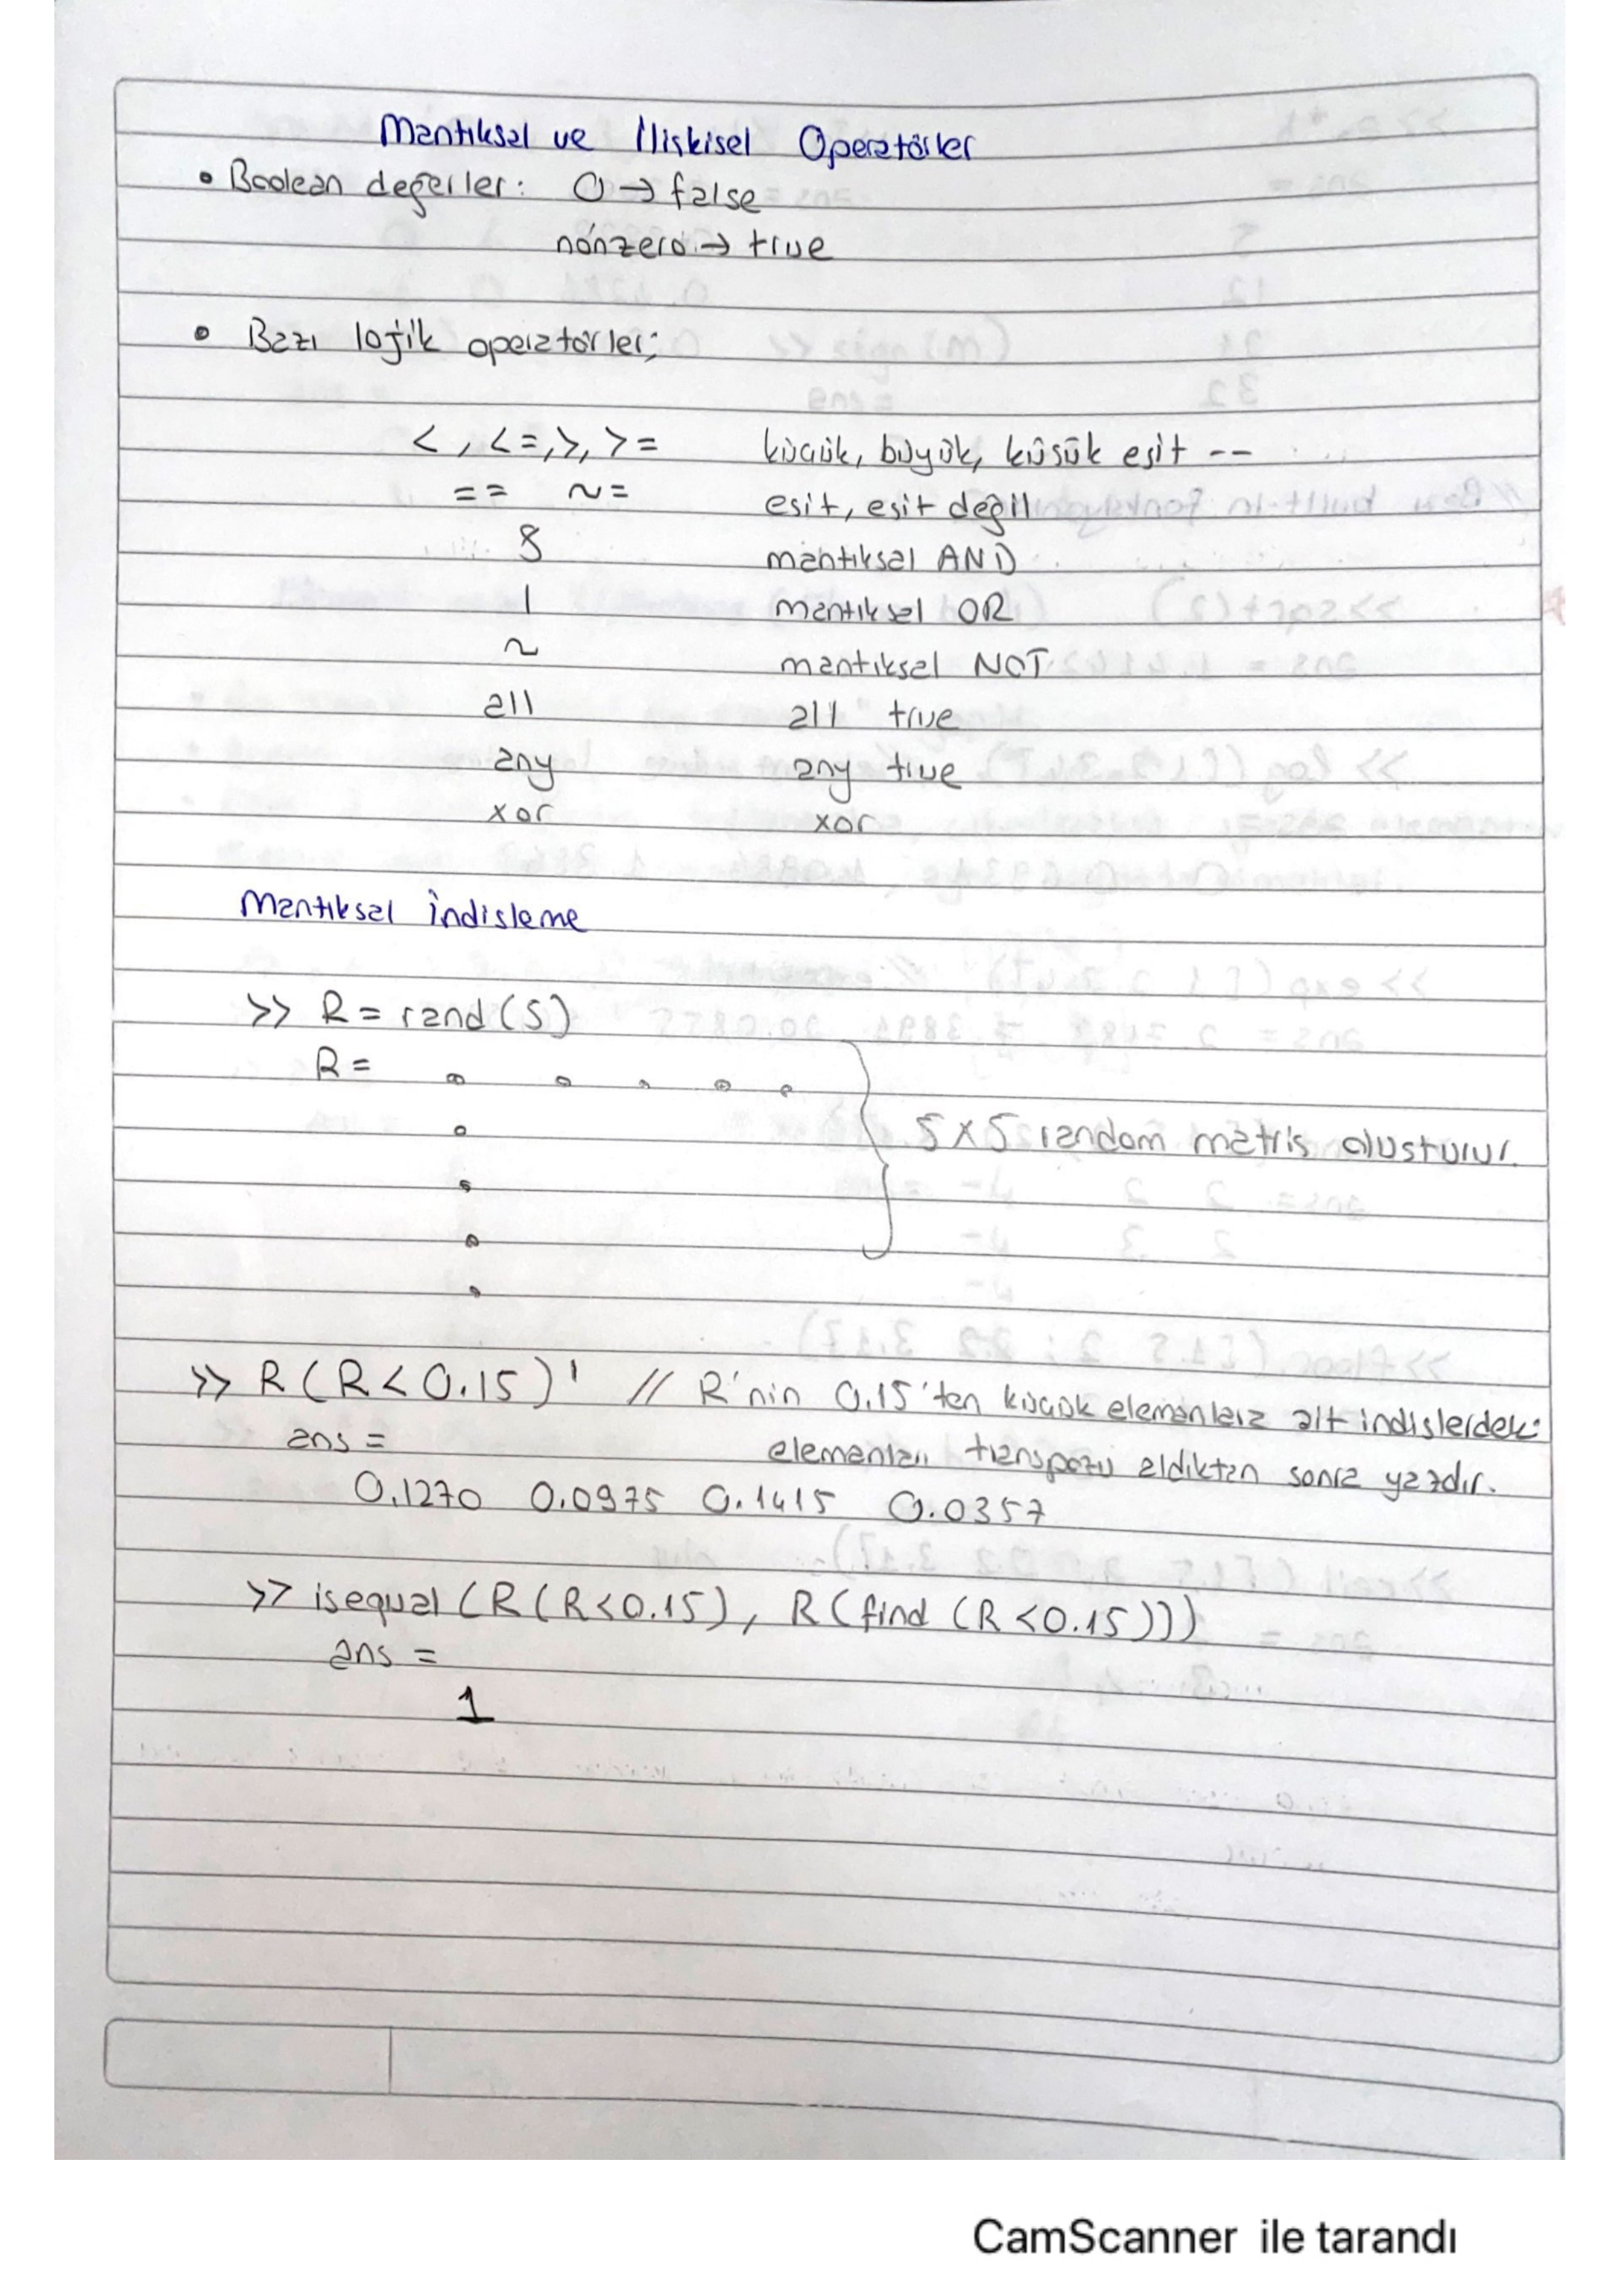 Mantıksal ve İlişkisel Operatörler
• Boolean değerler: 0 → false
nonzero → true
• Bazı lojik operatörler;
< , <=, >, >= küçük, büyük, küsük eşit --
== ~= esit, esit değil
& mantıksal AND
| mantıksal OR
~ mantıksal NOT
all all true
any any true
xor xor
Mantıksal İndisleme
>> R = rand(5)
R =
5 x 5 random matris oluşturur.
>> R(R<0.15)' // R'nin 0.15'ten küçük elemanlara alt indislerdeki
ans = elemanları transpozu aldıktan sonra yazdır.
0.1270 0.0975 0.1415 0.0357
>> isequal (R(R<0.15), R(find (R<0.15)))
ans =
1
CamScanner ile tarandı